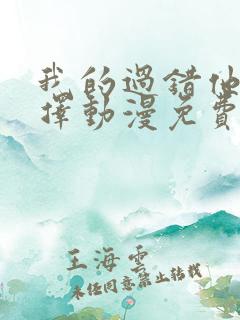 我的過錯他
擇動漫免費
王海雲
未经同意禁止转载